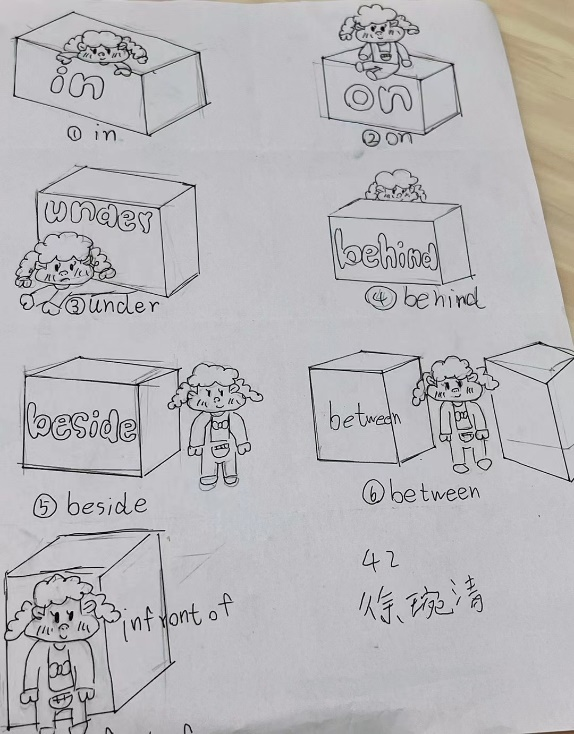 in
① in
on
② on
under
③ under
behind
④ behind
beside
⑤ beside
between
⑥ between
infront of
42
徐琬清